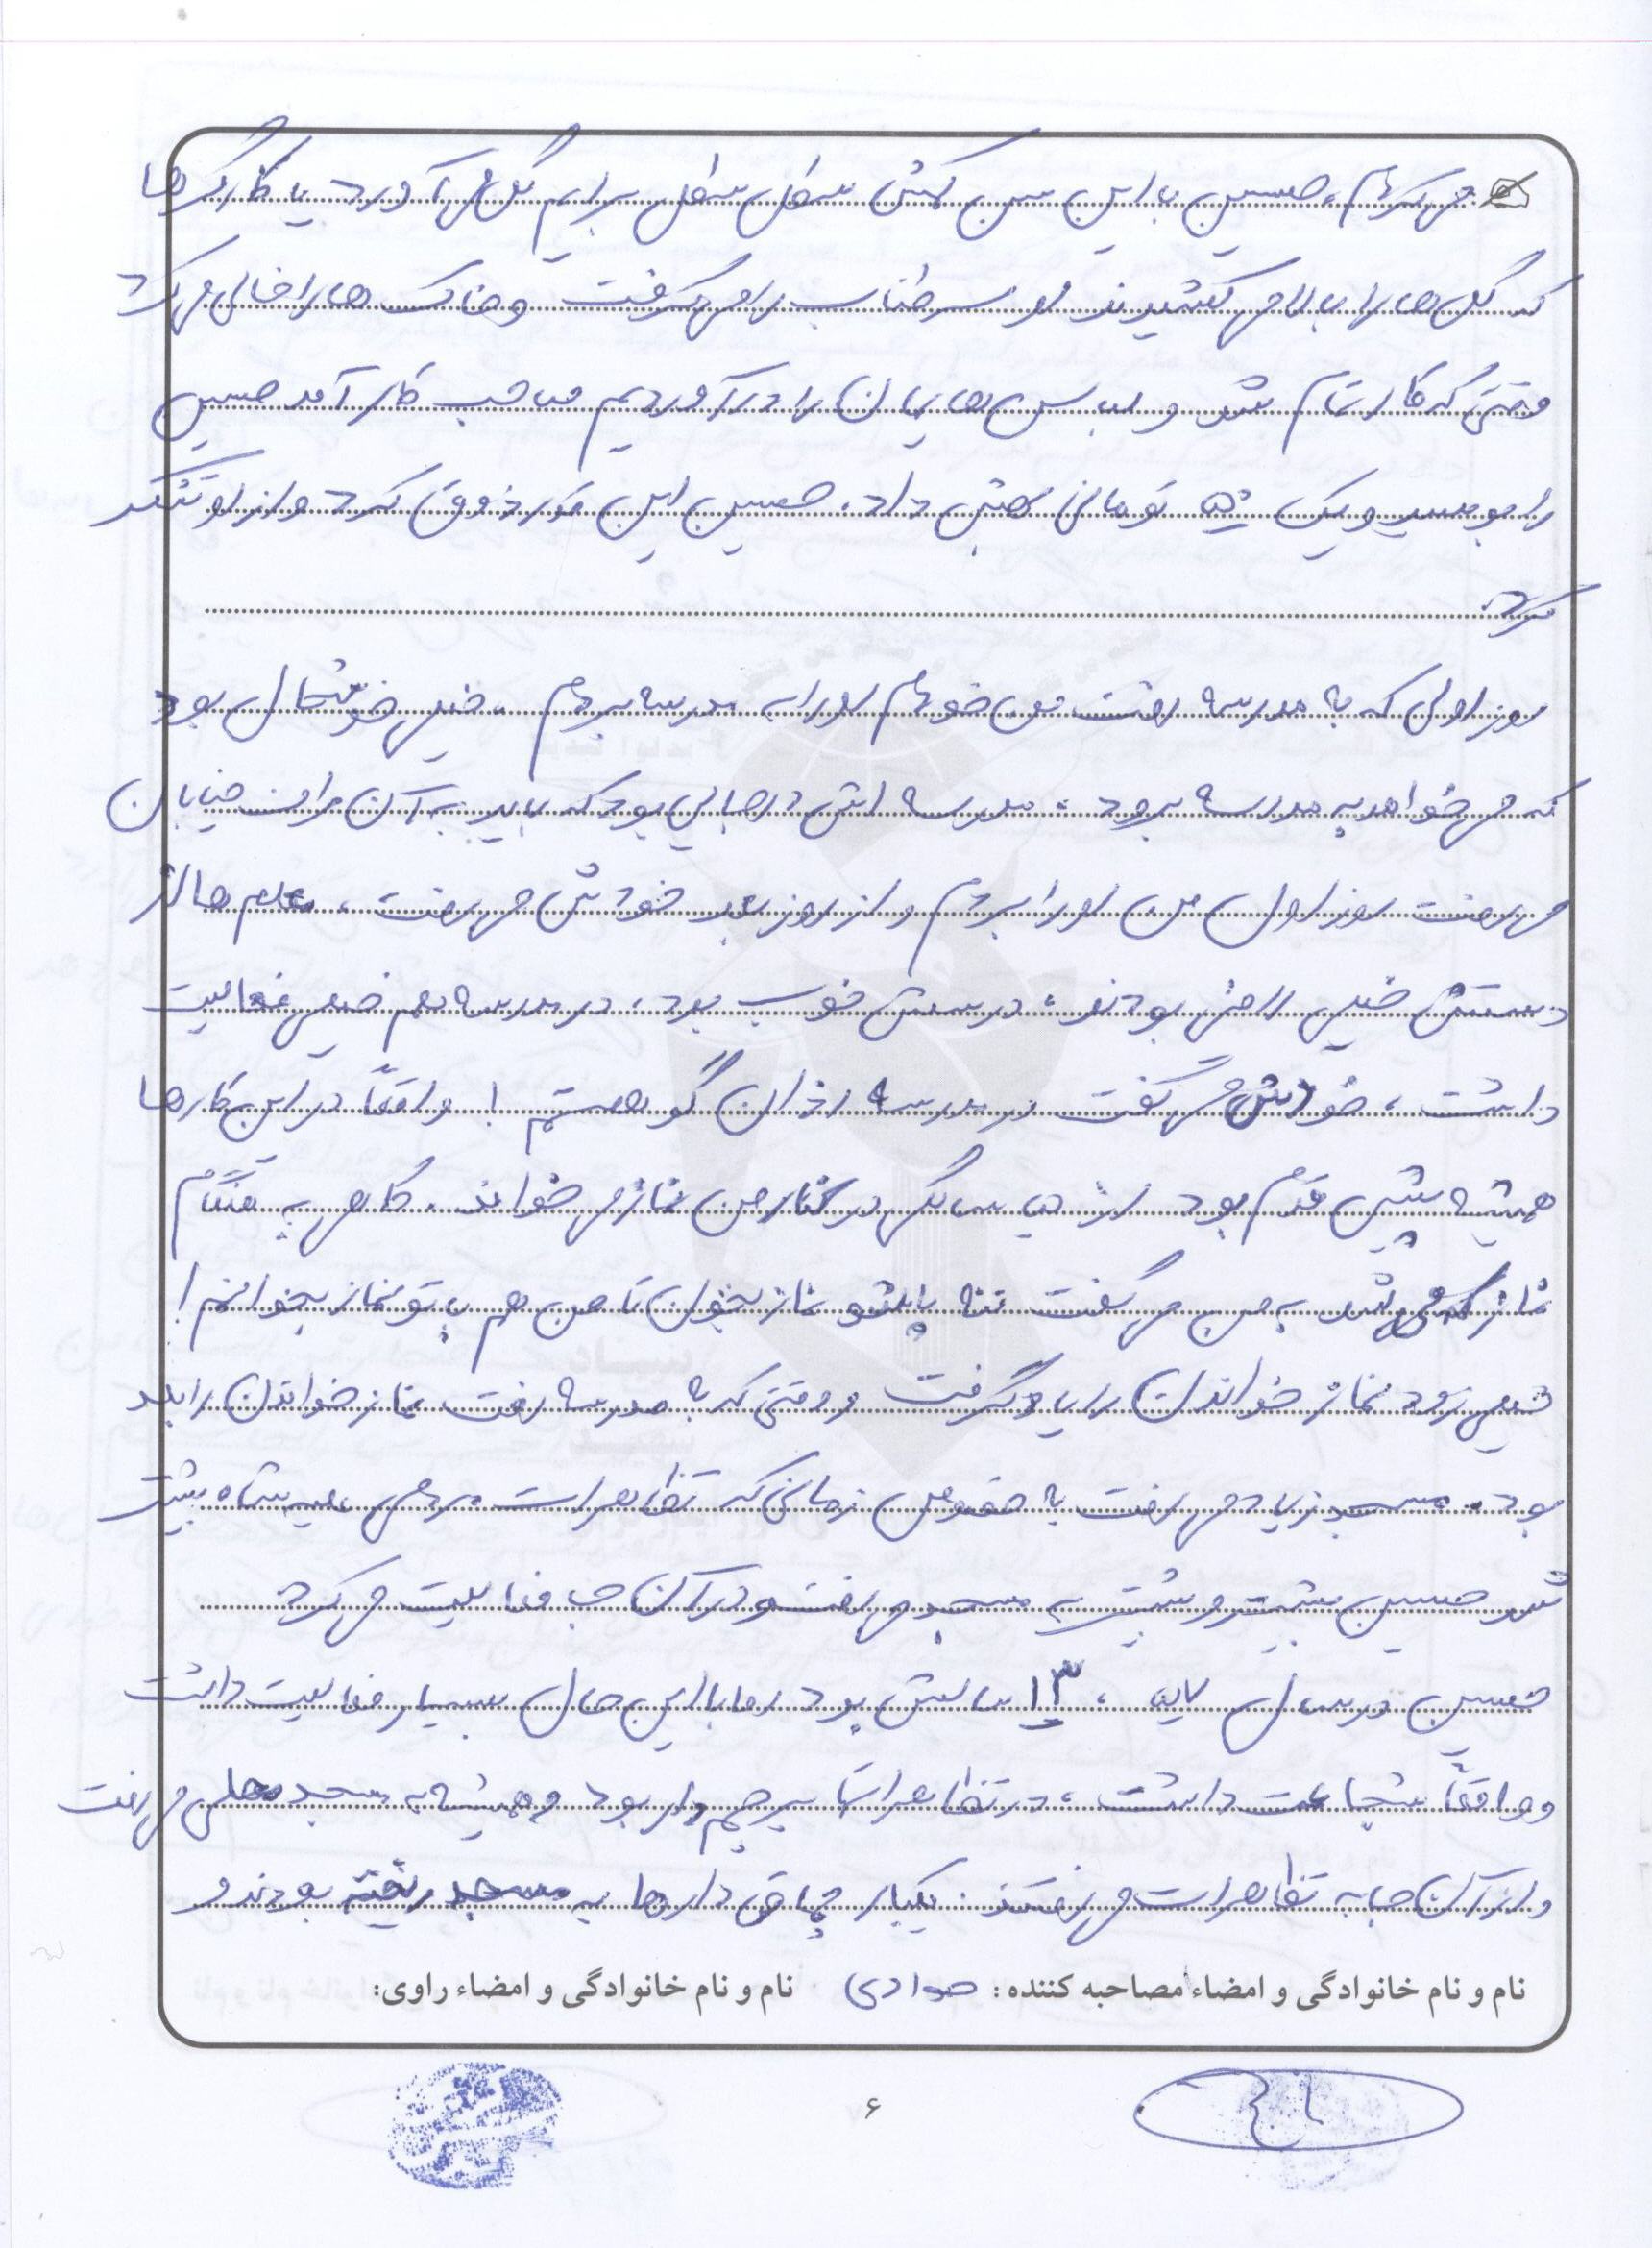 می کردم، حسین با این سن کمش سطل سطل برایم گل می آورد یا کارگرها
که گل ها را بالا می کشیدند او سر طناب را می گرفت و خاک ها را خالی می کرد
وقتی که کار تمام شد و لباس هایمان را درآوردیم صاحب کار آمد حسین
را بوسید و یک ده تومانی بهش داد. حسین این قدر ذوق کرد و از او تشکر
کرد.
روز اولی که به مدرسه رفت من خودم او را به مدرسه بردم، خیلی خوشحال بود
که می خواهد به مدرسه برود، مدرسه اش در جایی بود که باید به آن طرف خیابان
می رفت روز اول من او را بردم و از روز بعد خودش می رفت، معلم ها از
دستش خیلی راضی بودند، درسش خوب بود، در مدرسه هم خیلی فعالیت
داشت، خودش می گفت در مدرسه اذان گو هستم! واقعاً در این کارها
همیشه پیش قدم بود از سالگی در کنار من نماز می خواند. گاهی به هنگام
نماز که می شد به من می گفت ننه پاشو نماز بخوان تا من هم با تو نماز بخوانم!
خیلی زود نماز خواندن را یاد گرفت و وقتی که به مدرسه رفت نماز خواندن را بلد
بود. مسجد زیاد می رفت به خصوص زمانی که تظاهرات مردمی علیه شاه بیشتر
شد حسین بیشتر و بیشتر به مسجد می رفت و در آن جا فعالیت می کرد
حسین در سال ۵۷، ۱۳ سالش بود اما با این حال بسیار فعالیت داشت
و واقعاً شجاعت داشت، در تظاهرات پرچم دار بود و همیشه به مسجد محلی می رفت
و از آن جا به تظاهرات می رفتند. یکبار چماق دارها به مسجد ریخته بودند و
نام و نام خانوادگی و امضاء مصاحبه کننده: جوادی نام و نام خانوادگی و امضاء راوی:
۶